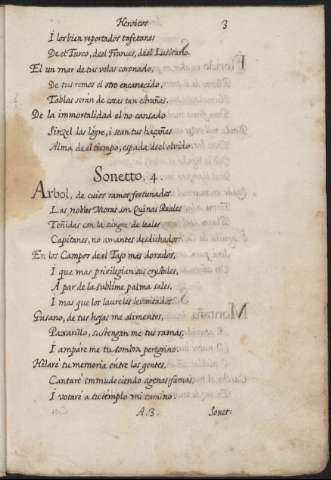 Heroicos 3
I los bien reportados tafetanes
De el Turco, de el Frances, de el Lusitano.
El un mar de tus velas coronado,
De tus remos el otro encanecido,
Tablas seran de cosas tan estrañas.
De la immortalidad el no cansado
Pinzel las lógre, i sean tus hazañas
Alma de el tiempo, espada de el olvido.
Sonetto, 4.
Arbol, de cuios ramos fortunados
Las nobles Moras son Quinas Reales
Teñidas con la sangre de leales
Capitanes, no amantes desdichados:
En los Campos de el Tajo mas dorados,
I que mas privilegian sus crystales,
A par de la sublime palma sales,
I mas que los laureles levantados.
Gusano, de tus hojas me alimentes,
Paxarillo, sustengan me tus ramas,
I ampáre me tu sombra peregrino.
Hilaré tu memoria entre las gentes,
Cantaré enmudeciendo agenas famas,
I votaré a tu templo mi camino.
A.3. Sonet-